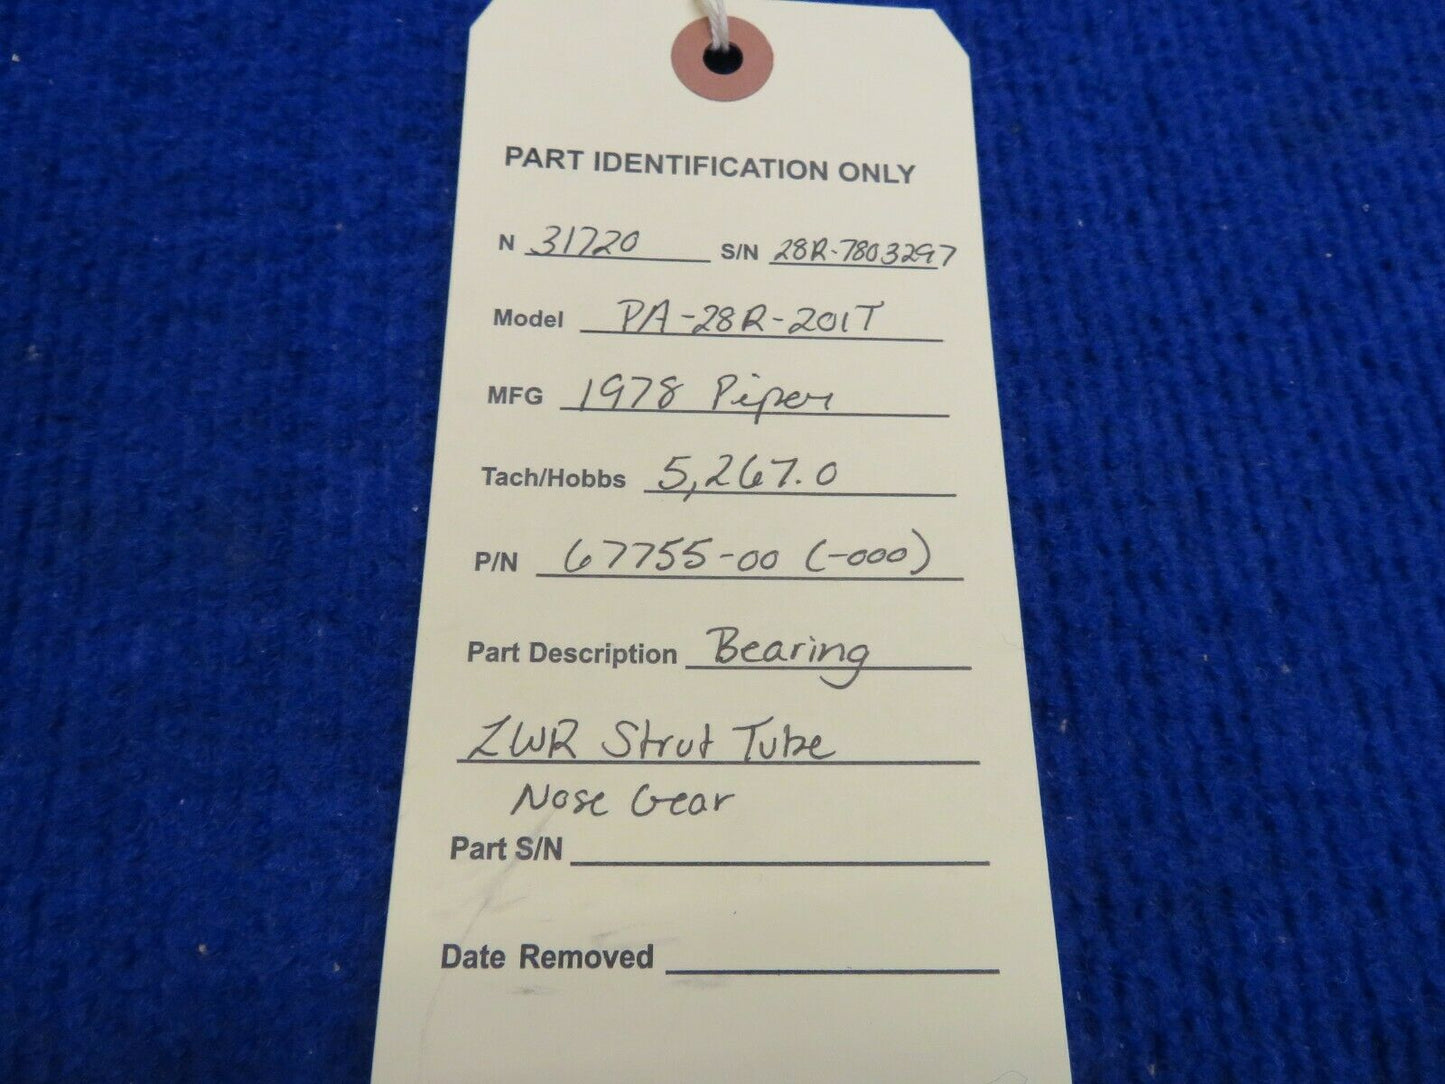 PART IDENTIFICATION ONLY
N 31720 S/N 28R-7803297
Model PA-28R-201T
MFG 1978 Piper
Tach/Hobbs 5,267.0
P/N 67755-00 (-000)
Part Description Bearing
LWR Strut Tube
Nose Gear
Part S/N
Date Removed